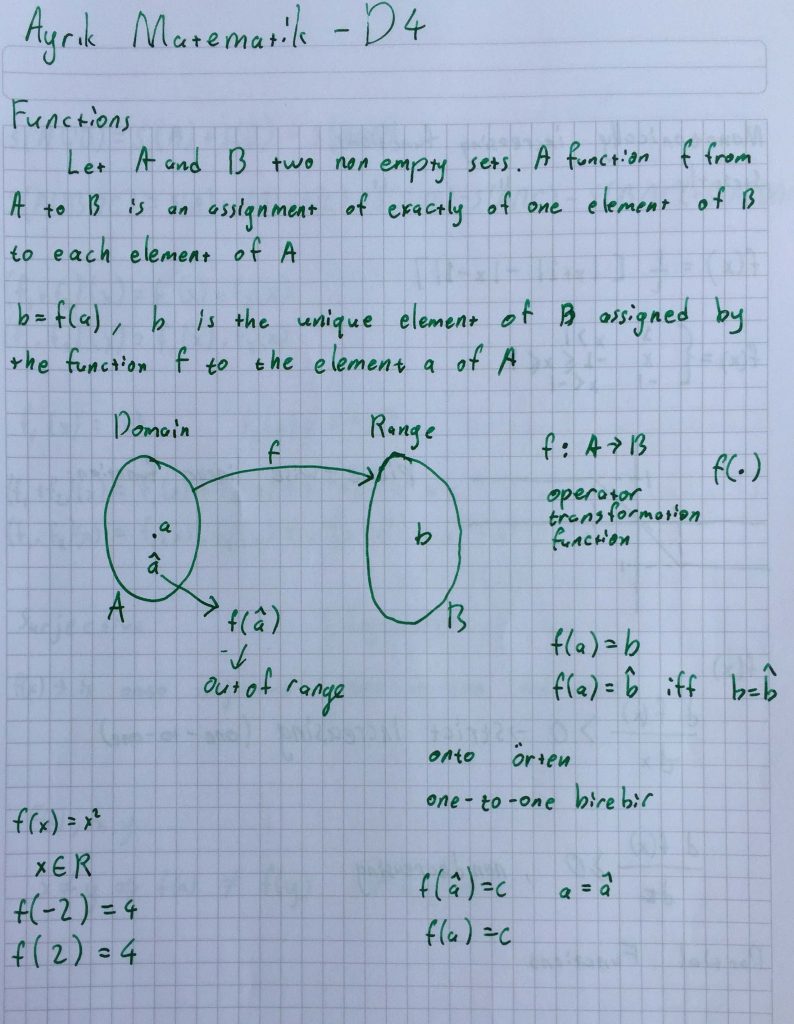 Ayrık Matematik - D4
Functions
Let A and B two non empty sets. A function f from
A to B is an assignment of exactly of one element of B
to each element of A
b = f(a), b is the unique element of B assigned by
the function f to the element a of A
Domain
Range
f
.a
â
b
A
B
f(â)
out of range
f: A → B
f(.)
operator
transformation
function
f(a) = b
f(a) = b̂ iff b = b̂
onto örten
one-to-one birebir
f(x) = x²
x ∈ R
f(-2) = 4
f(2) = 4
f(â) = c a = â
f(a) = c